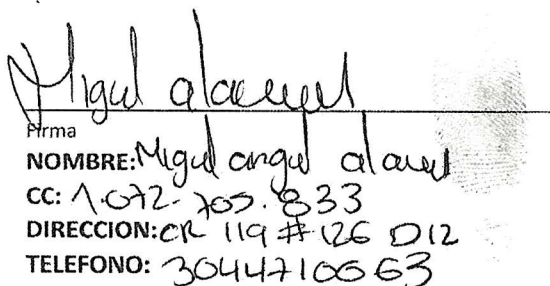 Miguel alauel
Firma
NOMBRE: Miguel angel alauel
CC: 1.072.705.833
DIRECCION: CR 119 # 126 D12
TELEFONO: 3044710663